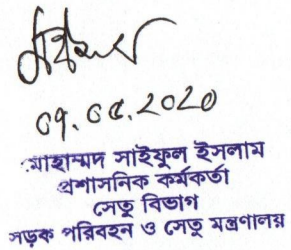 ০৭.০৫.২০২০
মোহাম্মদ সাইফুল ইসলাম
প্রশাসনিক কর্মকর্তা
সেতু বিভাগ
সড়ক পরিবহন ও সেতু মন্ত্রণালয়